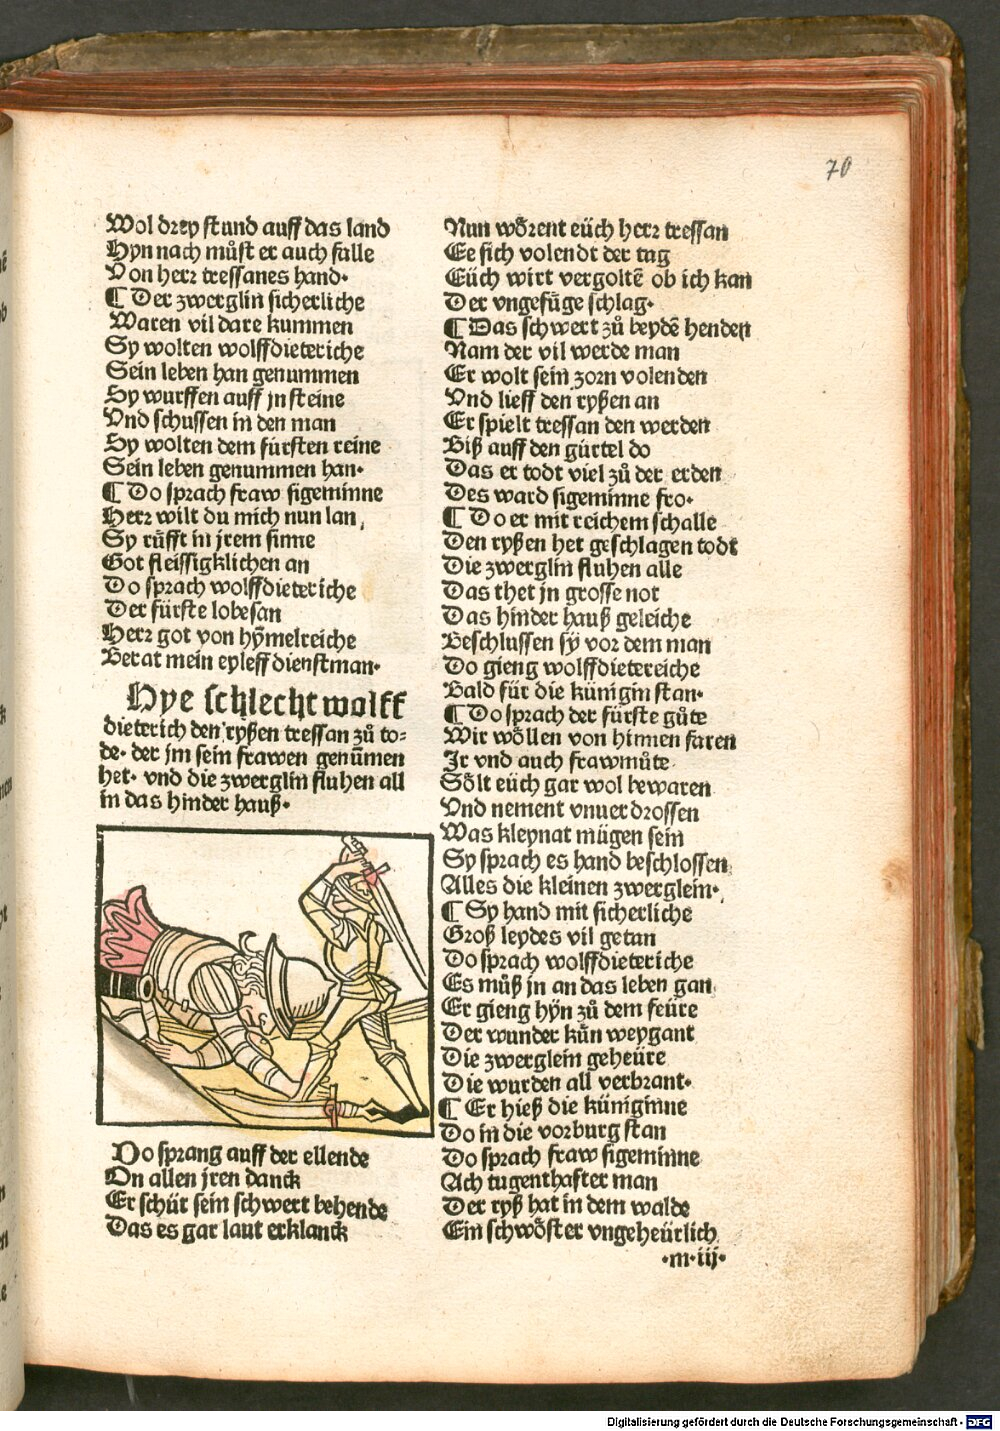 70
Wol drey stund auff das land
Hyn nach můst er auch falle
Von herr tressanes hand·
¶ Der zwerglin sicherliche
Waren vil dare kummen
Sy wolten wolffdieteriche
Sein leben han genummen
Sy wurffen auff jn steine
Vnd schussen in den man
Sy wolten dem fürsten reine
Sein leben genummen han·
¶ Do sprach fraw sigeminne
Herr wilt du mich nun lan
Sy rüfft in jrem sinne
Got fleissigklichen an
Do sprach wolffdieteriche
Der fürste lobesan
Herr got von hÿmelreiche
Berat mein eyleff dienstman·
Hye schlecht wolff
dieterich den ryßen tressan zů to=
de· der jm sein frawen genūmen
het· vnd die zwerglin fluhen all
in das hinder hauß·
Do sprang auff der ellende
On allen jren danck
Er schüt sein schwert behende
Das es gar laut erklanck
Nun wörent eüch herr tressan
Ee sich volendt der tag
Eüch wirt vergoltē ob ich kan
Der vngefüge schlag·
¶ Das schwert zů beydē henden
Nam der vil werde man
Er wolt sein zorn volenden
Vnd lieff den ryßen an
Er spielt tressan den werden
Biß auff den gürtel do
Das er todt viel zů der erden
Des ward sigeminne fro·
¶ Do er mit reichem schalle
Den ryßen het geschlagen todt
Die zwerglin fluhen alle
Das thet jn grosse not
Das hinder hauß geleiche
Beschlussen sÿ vor dem man
Do gieng wolffdietereiche
Bald für die künigin stan·
¶ Do sprach der fürste gůte
Wir wöllen von hinnen faren
Ir vnd auch frawmůte
Sölt eüch gar wol bewaren
Vnd nement vnuerdrossen
Was kleynat mügen sein
Sy sprach es hand beschlossen
Alles die kleinen zwerglein·
¶ Sy hand mit sicherliche
Groß leydes vil getan
Do sprach wolffdieteriche
Es můß jn an das leben gan
Er gieng hÿn zů dem feüre
Der wunder kün weygant
Die zwerglein geheüre
Die wurden all verbrant·
¶ Er hieß die küniginne
Do in die vorburg stan
Do sprach fraw sigeminne
Ach tugenthafter man
Der ryß hat in dem walde
Ein schwöster vngeheürlich
·m·iij·
Digitalisierung gefördert durch die Deutsche Forschungsgemeinschaft - DFG